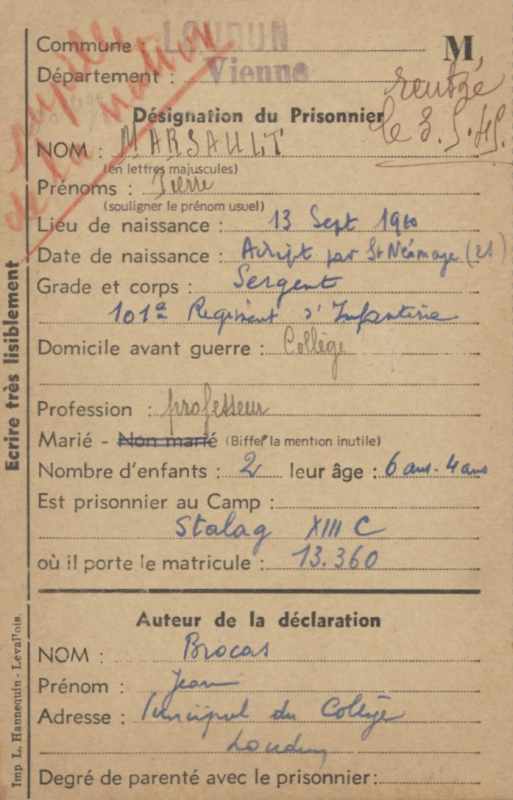 Commune : LOUDUN
M
Département : Vienne
pupille
de la nation
rentré
le 3.5.45.
Désignation du Prisonnier
NOM : MARSAULT
(en lettres majuscules)
Prénoms : Pierre
(souligner le prénom usuel)
Lieu de naissance : 13 Sept 1910
Date de naissance : par St Néomaye
Grade et corps : Sergent
101e Régiment d'Infanterie
Domicile avant guerre : Collège
Profession : professeur
Marié - Non marié (Biffer la mention inutile)
Nombre d'enfants : 2 leur âge : 6 ans - 4 ans
Est prisonnier au Camp :
Stalag XIII C
où il porte le matricule : 13.360
Auteur de la déclaration
NOM : Brocas
Prénom : Jean
Adresse : Principal du Collège
Loudun
Degré de parenté avec le prisonnier :
Ecrire très lisiblement
Imp. L. Hannequin - Levallois.